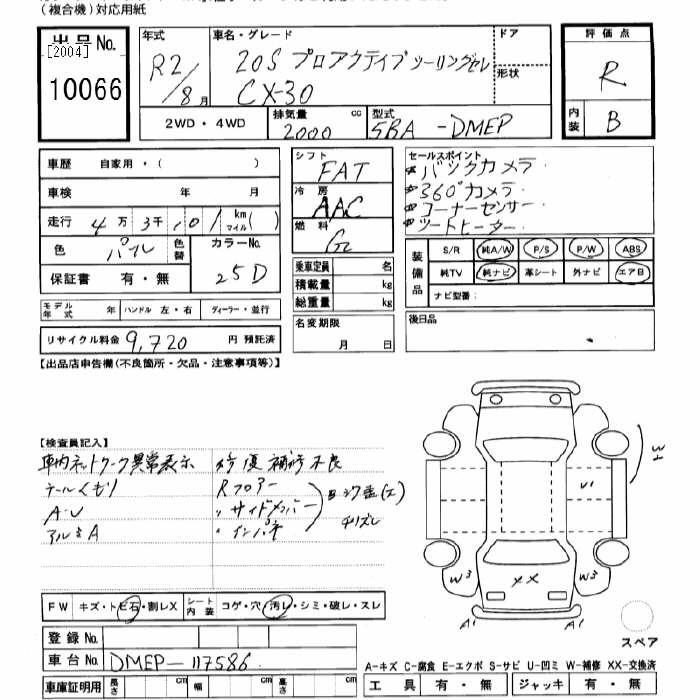 (複合機)対応用紙
出品No.
[2004]
10066
年式
R2/8月
車名・グレード
20S プロアクティブツーリングセレ
CX-30
ドア
形状
2WD・4WD
排気量
2000 cc
型式
5BA-DMEP
評価点
R
内装
B
車歴 自家用・( )
車検 年 月
走行 4万3千 101 km マイル( )
色 パール 色替
カラーNo.
25D
保証書 有・無
モデル年式 年 ハンドル 左・右 ディーラー・並行
リサイクル料金 9,720 円 預託済
シフト
FAT
冷房
AAC
燃料
G
乗車定員 名
積載量 kg
総重量 kg
名変期限
月 日
セールスポイント
バックカメラ
360°カメラ
コーナーセンサー
シートヒーター
装備品
S/R 純A/W P/S P/W ABS
純TV 純ナビ 革シート 外ナビ エアB
ナビ型番:
後日品
【出品店申告欄(不良箇所・欠品・注意事項等)】
【検査員記入】
車内ネットワーク異常表示 修復補修不良
テールくもり Rフロアー
A・U 〃サイドメンバー
アルミA 〃インパネ
W1
U1
W3 XX W3
A1 A1
スペア
FW キズ・トビ石・割レX シート内装 コゲ・穴・汚レ・シミ・破レ・スレ
登録No.
車台No. DMEP-117586
車庫証明用 長さ cm 幅 cm 高さ cm
A-キズ C-腐食 E-エクボ S-サビ U-凹ミ W-補修 XX-交換済
工具 有・無 ジャッキ 有・無